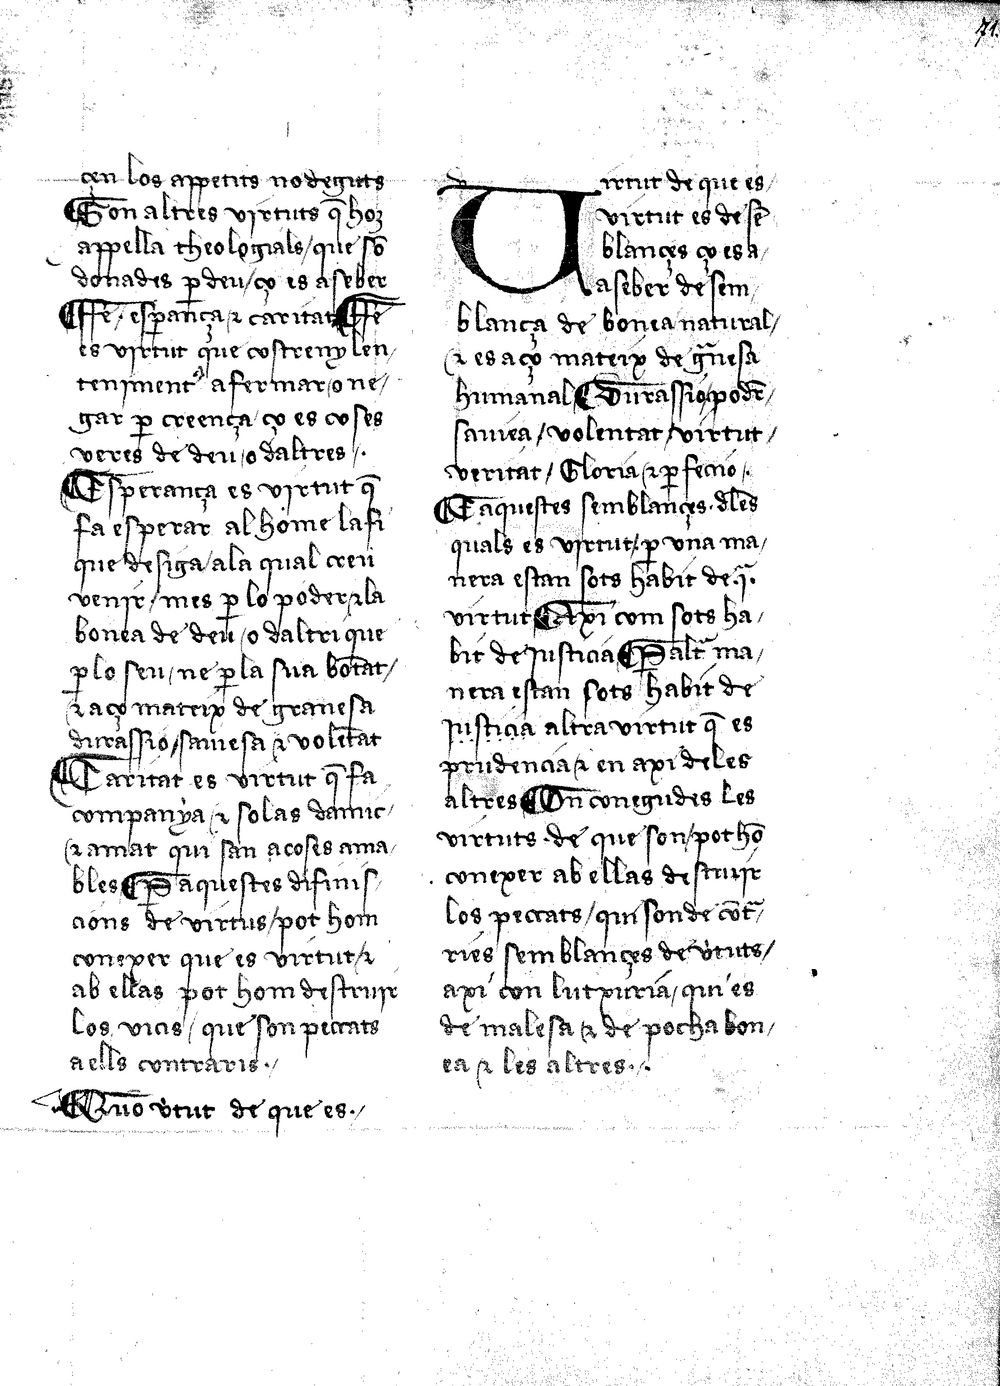 71.
çen los appetits no deguts
Son altres virtuts q̄ hoꝫ
appella theologials / que sō
donades ꝑ deu / ço es a seber
ffe · esperança ⁊ caritat ffe
es virtut que costreny len /
teniment a fermar / o ne /
gar ꝑ creença / ço es coses
veres de deu / o daltres / ·
Esperança es virtut q̄
fa esperar al home la fi
que desiga / a la qual creu
venir / mes ꝑ lo poder / ⁊ la
bonea de deu / o daltri que
ꝑ lo seu / ne ꝑ la sua bōtat /
⁊ aço mateix de granesa
durassio / sauiesa ⁊ volētat
Caritat es virtut q̄ fa
companya / ⁊ solas damic /
⁊ amat qui san a coses ama /
bles Ꝑ aquestes difinis /
cions de virtus / pot hom
conexer que es virtut / ⁊
ab ellas pot hom destruir
los vicis / que son peccats
a ells contraris · /
Quō v̓tut de que es · /
Virtut de que es /
virtut es de sē
blançes ço es a /
a seber de sem /
blança de bonea natural /
⁊ es aço mateix de gͣnesa
humanal Durassio / podr̄ /
sauiea / volentat / virtut /
veritat / Gloria / ⁊ ꝑfeccio / ·
E aquestes semblançes · dl̄es
quals es virtut / ꝑ vna ma /
nera estan sots habit de qͣ ·
virtut Axi com sots ha /
bit de justicia Ꝑ altͣ ma /
nera estan sots habit de
justicia altra virtut q̄ es
prudencia / ⁊ en axi de les
altres On conegudes les
virtuts · de que son / pot hō
conexer ab ellas destruir
los peccats / qui son de cōtͣ /
ries semblançes de v̓tuts /
axi con lutxuria / qui es
de malesa ⁊ de pocha bon /
ea ⁊ les altres · / ·